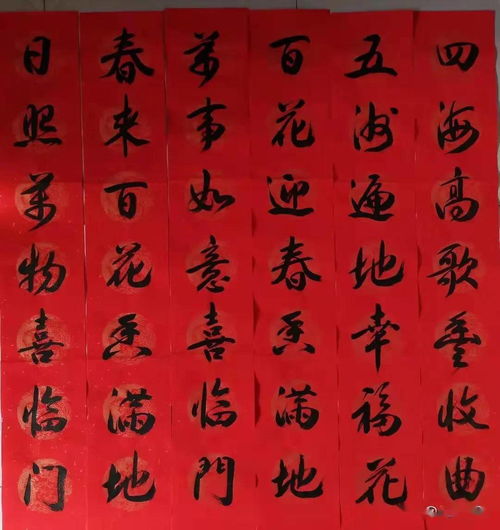 四海高歌豐收曲
五洲遍地幸福花
百花迎春香满地
萬事如意喜临門
春来百花香满地
日照萬物喜临门